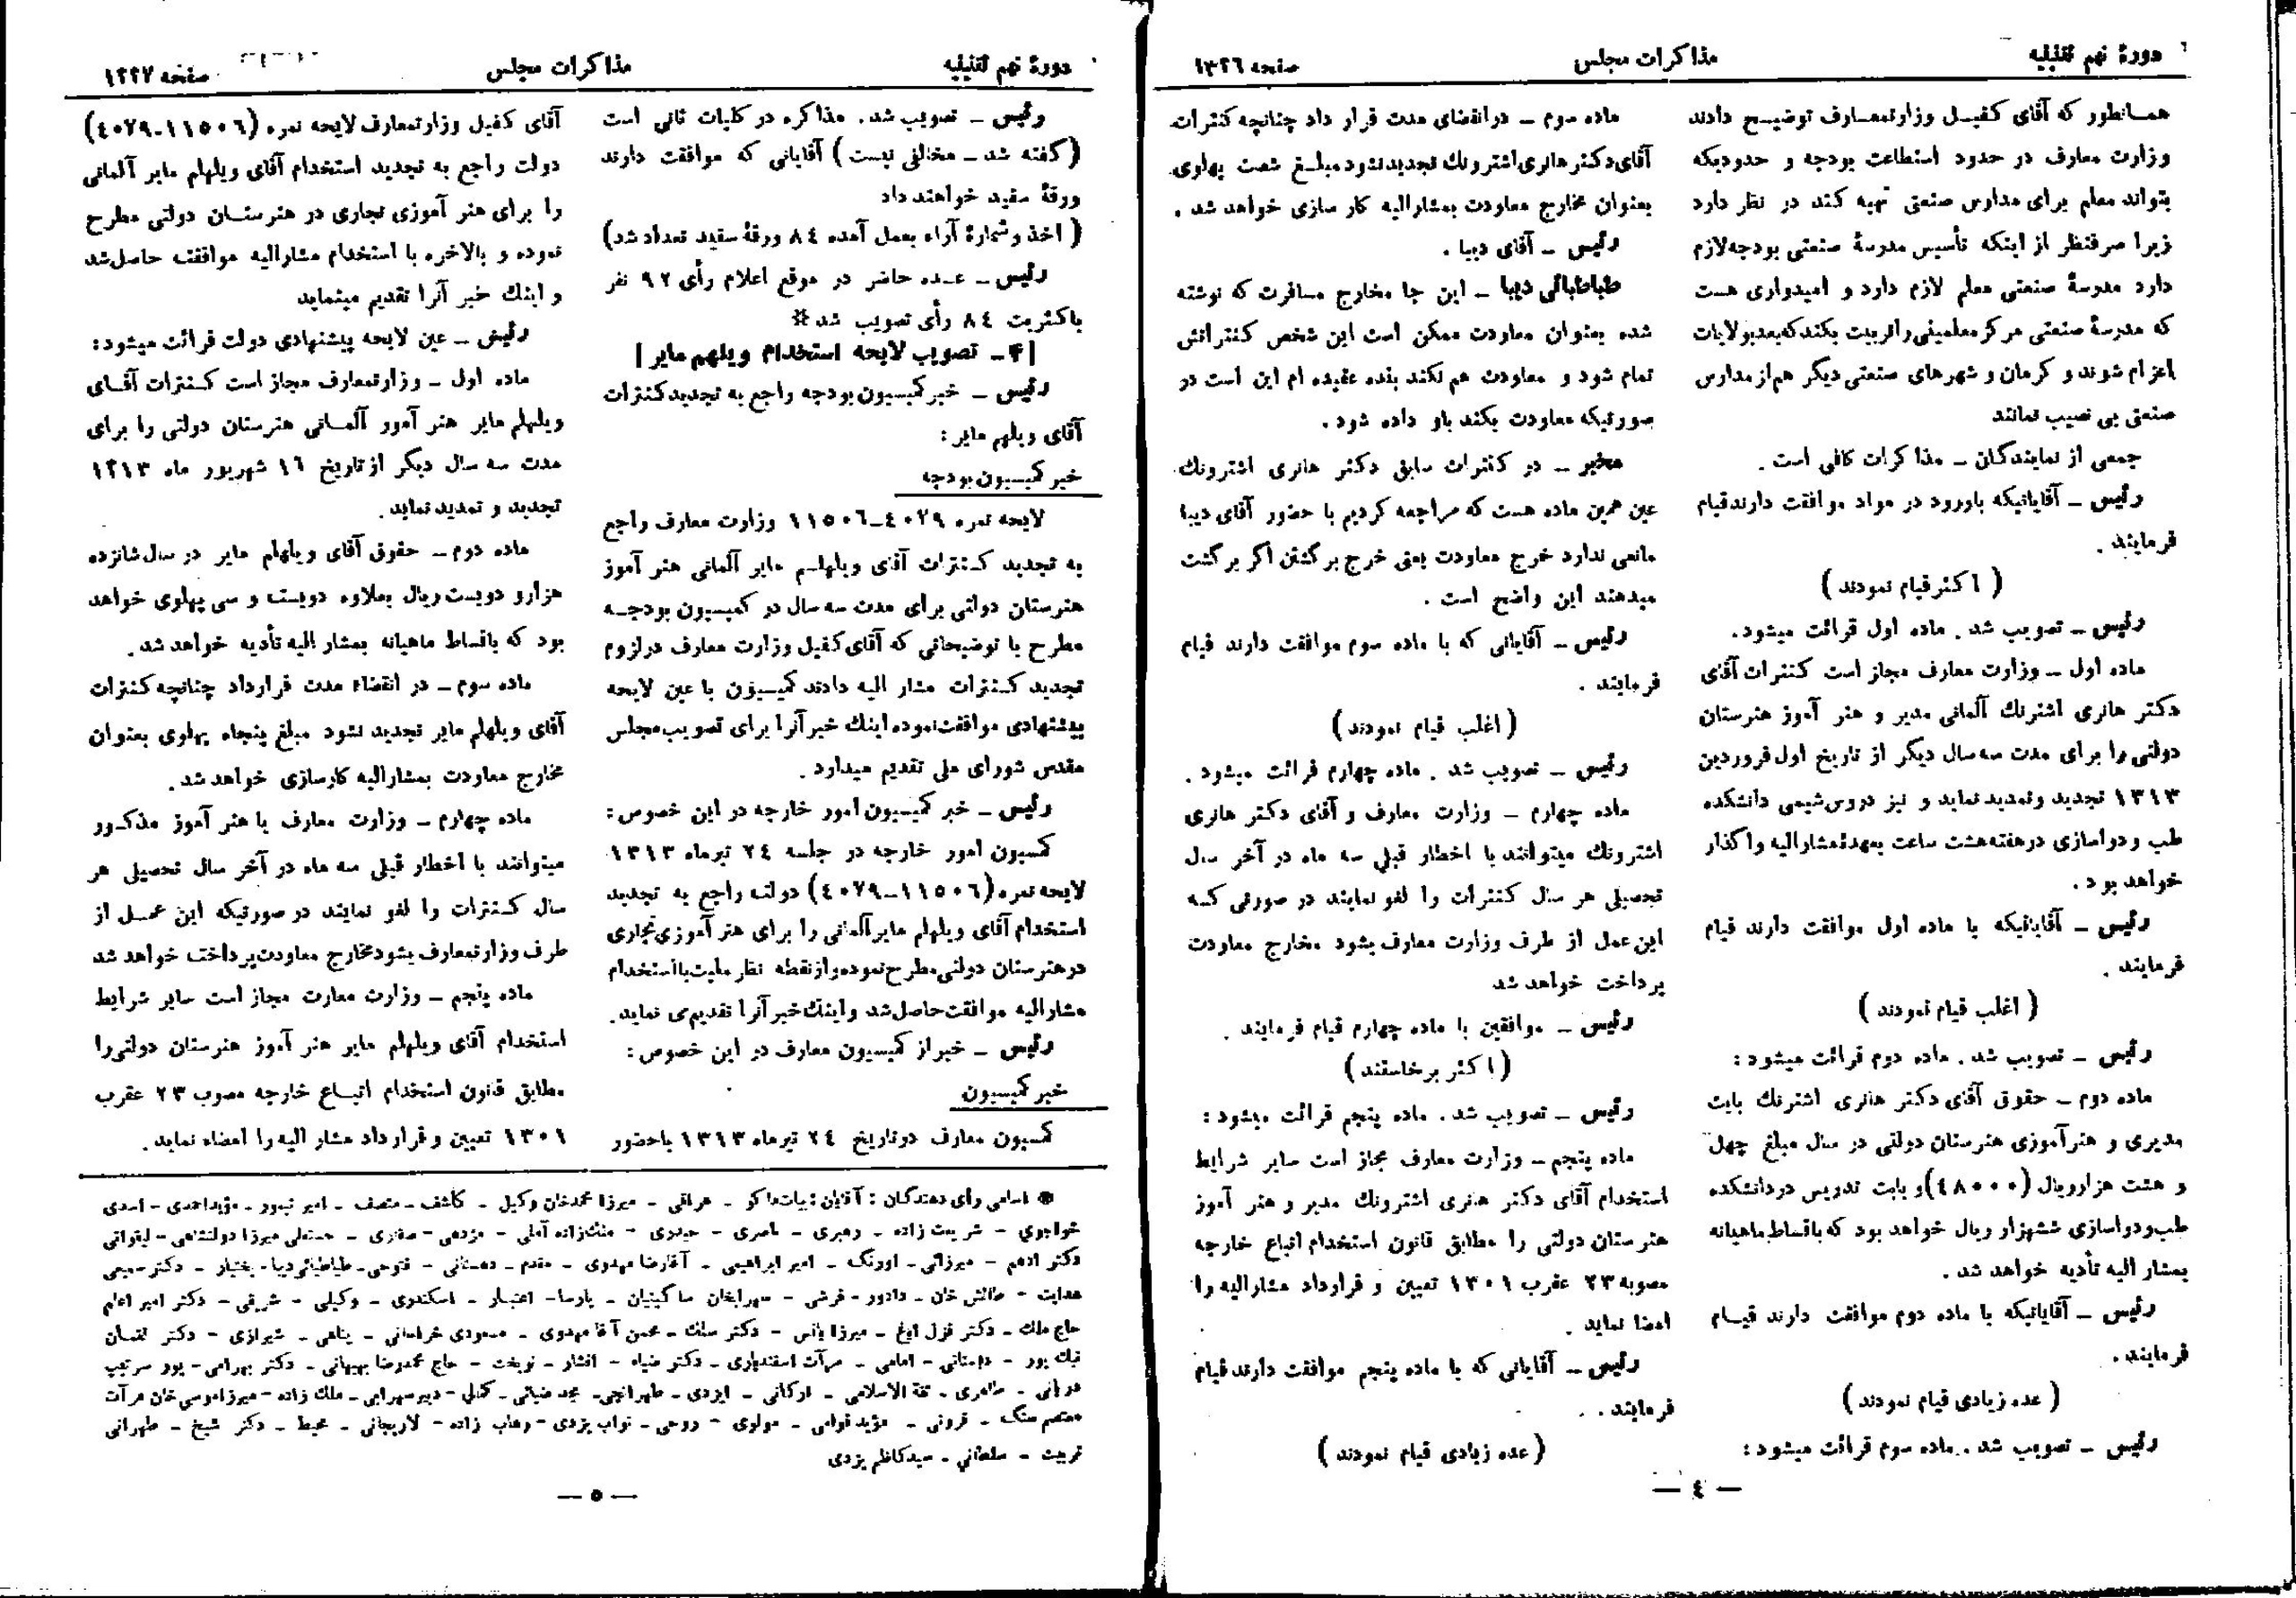 دورهٔ نهم تقنینیه
مذاکرات مجلس
صفحه ۱۳۲۶
همـانطور که آقای کفیـل وزارتمعـارف توضیـح دادند
وزارت معارف در حدود استطاعت بودجه و حدودیکه
بتواند معلم برای مدارس صنعتی تهیه کند در نظر دارد
زیرا صرفنظر از اینکه تأسیس مدرسهٔ صنعتی بودجه‌لازم
دارد مدرسهٔ صنعتی معلم لازم دارد و امیدواری هست
که مدرسهٔ صنعتی مرکز معلمینی را تربیت بکند که بعد بولایات
اعزام شوند و کرمان و شهرهای صنعتی دیگر هم از مدارس
صنعتی بی نصیب نمانند
جمعی از نمایندگان ـ مذاکرات کافی است .
رئیس ـ آقایانیکه باورود در مواد موافقت دارند قیام
فرمایند .
( اکثر قیام نمودند )
رئیس ـ تصویب شد . ماده اول قرائت میشود.
ماده اول ـ وزارت معارف مجاز است کنترات آقای
دکتر هانری اشترنك آلمانی مدیر و هنر آموز هنرستان
دولتی را برای مدت سه سال دیگر از تاریخ اول فروردین
۱۳۱۳ تجدید وتمدید نماید و نیز دروس شیمی دانشکده
طب و دواسازی در هفته هشت ساعت بعهدۀ مشارالیه واگذار
خواهد بود.
رئیس ـ آقایانیکه با ماده اول موافقت دارند قیام
فرمایند .
( اغلب قیام نمودند )
رئیس ـ تصویب شد . ماده دوم قرائت میشود :
ماده دوم ـ حقوق آقای دکتر هانری اشترنك بابت
مدیری و هنرآموزی هنرستان دولتی در سال مبلغ چهل
و هشت هزارریال (۴۸۰۰۰) و بابت تدریس دردانشکده
طب و دواسازی ششهزار ریال خواهد بود که باقساط ماهیانه
بمشار الیه تأدیه خواهد شد .
رئیس ـ آقایانیکه با ماده دوم موافقت دارند قیـام
فرمایند .
( عده زیادی قیام نمودند )
رئیس ـ تصویب شد . ماده سوم قرائت میشود :
ماده سوم ـ درانقضای مدت قرار داد چنانچه کنترات
آقای دکتر هانری اشترونك تجدید نشود مبلـغ شصت پهلوی
بعنوان مخارج معاودت بمشارالیه کار سازی خواهد شد .
رئیس ـ آقای دیبا .
طباطبائی دیبا ـ این جا مخارج مسافرت که نوشته
شده بعنوان معاودت ممکن است این شخص کنتراتش
تمام شود و معاودت هم نکند بنده عقیده ام این است در
صورتیکه معاودت بکند باو داده شود .
مخبر ـ در کنترات سابق دکتر هانری اشترونك
عین همین ماده هست که مراجعه کردیم با حضور آقای دیبا
مانعی ندارد خرج معاودت یعنی خرج برگشتن اگر برگشت
میدهند این واضح است .
رئیس ـ آقایانی که با ماده سوم موافقت دارند قیام
فرمایند .
( اغلب قیام نمودند )
رئیس ـ تصویب شد . ماده چهارم قرائت میشود .
ماده چهارم ـ وزارت معارف و آقای دکتر هانری
اشترونك میتوانند با اخطار قبلی سه ماه در آخر سال
تحصیلی هر سال کنترات را لغو نمایند در صورتی کـه
این عمل از طرف وزارت معارف بشود مخارج معاودت
پرداخت خواهد شد
رئیس ـ موافقین با ماده چهارم قیام فرمایند .
( اکثر برخاستند )
رئیس ـ تصویب شد . ماده پنجم قرائت میشود :
ماده پنجم ـ وزارت معارف مجاز است سایر شرایط
استخدام آقای دکتر هانری اشترونك مدیر و هنر آموز
هنرستان دولتی را مطابق قانون استخدام اتباع خارجه
مصوبه ۲۳ عقرب ۱۳۰۱ تعیین و قرارداد مشارالیه را
امضا نماید .
رئیس ـ آقایانی که با ماده پنجم موافقت دارند قیام
فرمایند .
( عده زیادی قیام نمودند )
ـ ۴ ـ
دورهٔ نهم تقنینیه
مذاکرات مجلس
صفحه ۱۳۲۷
رئیس ـ تصویب شد . مذاکره در کلیات ثانی است
( گفته شد ـ مخالفی نیست ) آقایانی که موافقت دارند
ورقهٔ سفید خواهند داد
( اخذ وشمارهٔ آراء بعمل آمده ۸۴ ورقهٔ سفید تعداد شد)
رئیس ـ عـده حاضر در موقع اعلام رأی ۹۲ نفر
باکثریت ۸۴ رأی تصویب شد ※
[ ۴ـ تصویب لایحه استخدام ویلهم مایر ]
رئیس ـ خبر کمیسیون بودجه راجع به تجدید کنترات
آقای ویلهم مایر :
خبر کمیسیون بودجه
لایحه نمره ۴۰۲۹ـ۱۱۵۰۶ وزارت معارف راجع
به تجدید کـنترات آقای ویلهلـم مایر آلمانی هنر آموز
هنرستان دولتی برای مدت سه سال در کمیسیون بودجـه
مطرح با توضیحاتی که آقای کفیل وزارت معارف در لزوم
تجدید کـنترات مشار الیه دادند کمیسیون با عین لایحه
پیشنهادی موافقت نموده اینك خبر آنرا برای تصویب مجلس
مقدس شورای ملی تقدیم میدارد .
رئیس ـ خبر کمیسیون امور خارجه در این خصوص :
کمسیون امور خارجه در جلسه ۲۴ تیرماه ۱۳۱۳
لایحه نمره (۱۱۵۰۶ـ۴۰۷۹) دولت راجع به تجدید
استخدام آقای ویلهلم مایر آلمانی را برای هنر آموزی نجاری
در هنرستان دولتی مطرح نموده واز نقطه نظر ملیت با استخدام
مشارالیه موافقت حاصل شد و اینك خبر آنرا تقدیم می نماید .
رئیس ـ خبر از کمیسیون معارف در این خصوص :
خبر کمیسیون
کمسیون معارف در تاریخ ۲۴ تیرماه ۱۳۱۳ باحضور
آقای کفیل وزارتمعارف لایحه نمره (۱۱۵۰۶ـ۴۰۷۹)
دولت راجع به تجدید استخدام آقای ویلهلم مایر آلمانی
را برای هنر آموزی نجاری در هنرستـان دولتی مطرح
نموده و بالاخره با استخدام مشارالیه موافقت حاصل شد
و اینك خبر آنرا تقدیم مینماید
رئیس ـ عین لایحه پیشنهادی دولت قرائت میشود :
ماده اول ـ وزارتمعارف مجاز است کـنترات آقـای
ویلهلم مایر هنر آموز آلمـانی هنرستان دولتی را برای
مدت سه سال دیگر از تاریخ ۱۶ شهریور ماه ۱۳۱۳
تجدید و تمدید نماید .
ماده دوم ـ حقوق آقای ویلهلم مایر در سال شانزده
هزارو دویست ریال بعلاوه دویست و سی پهلوی خواهد
بود که باقساط ماهیانه بمشار الیه تأدیه خواهد شد .
ماده سوم ـ در انقضاء مدت قرارداد چنانچه کنترات
آقای ویلهلم مایر تجدید نشود مبلغ پنجاه پهلوی بعنوان
مخارج معاودت بمشارالیه کارسازی خواهد شد .
ماده چهارم ـ وزارت معارف یا هنر آموز مذکـور
میتوانند با اخطار قبلی سه ماه در آخر سال تحصیلی هر
سال کـنترات را لغو نمایند در صورتیکه این عمـل از
طرف وزارتمعارف بشود مخارج معاودت پرداخت خواهد شد
ماده پنجم ـ وزارت معارت مجاز است سایر شرایط
استخدام آقای ویلهلم مایر هنر آموز هنرستان دولتی را
مطابق قانون استخدام اتبـاع خارجه مصوب ۲۳ عقرب
۱۳۰۱ تعیین و قرارداد مشار الیه را امضاء نماید .
※ اسامی رأی دهندگان : آقایان : بیات ماکو ـ عراقی ـ میرزا محمدخان وکیل ـ کاشف ـ منصف ـ امیر تیمور ـ مؤیداحمدی ـ اسدی
خواجوی ـ شریعت زاده ـ رهبری ـ ناصری ـ حیدری ـ ملك‌زاده آملی ـ مژدهی ـ صفاری ـ میرزا دولتشاهی ـ لیقوانی
دکتر ادهم ـ میرزائی ـ اورنگ ـ امیر ابراهیمی ـ آقارضا مهدوی ـ مقدم ـ دهستانی ـ فتوحی ـ طباطبائی دیبا ـ بختیار ـ دکتر سمیعی
هدایت ـ طالش خان ـ دادور ـ قرشی ـ سهرابخان ساگینیان ـ پارسا ـ اعتبار ـ اسکندری ـ وکیلی ـ شریفی ـ دکتر امیر اعلم
حاج ملك ـ دکتر قزل ایاغ ـ میرزا یانس ـ دکتر ملك ـ محسن آقا مهدوی ـ مسعودی خراسانی ـ پناهی ـ شیرازی ـ دکتر لقمان
نیك پور ـ دبستانی ـ امامی ـ مرآت اسفندیاری ـ دکتر ضیاء ـ افشار ـ نوبخت ـ حاج محمدرضا بهبهانی ـ دکتر بهرامی ـ پور سرتیپ
طاهری ـ ثقة الاسلامی ـ اورکانی ـ ایزدی ـ طهرانچی ـ مجد ضیائی ـ کمالی ـ دبیر سهرابی ـ ملك زاده ـ میرزا موسی خان مرآت
معتصم سنگ ـ قزونی ـ مؤید قوامی ـ مولوی ـ روحی ـ نواب یزدی ـ وهاب زاده ـ لاریجانی ـ محیط ـ دکتر شیخ ـ طهرانی
تربیت ـ سلطانی ـ سیدکاظم یزدی
ـ ۵ ـ